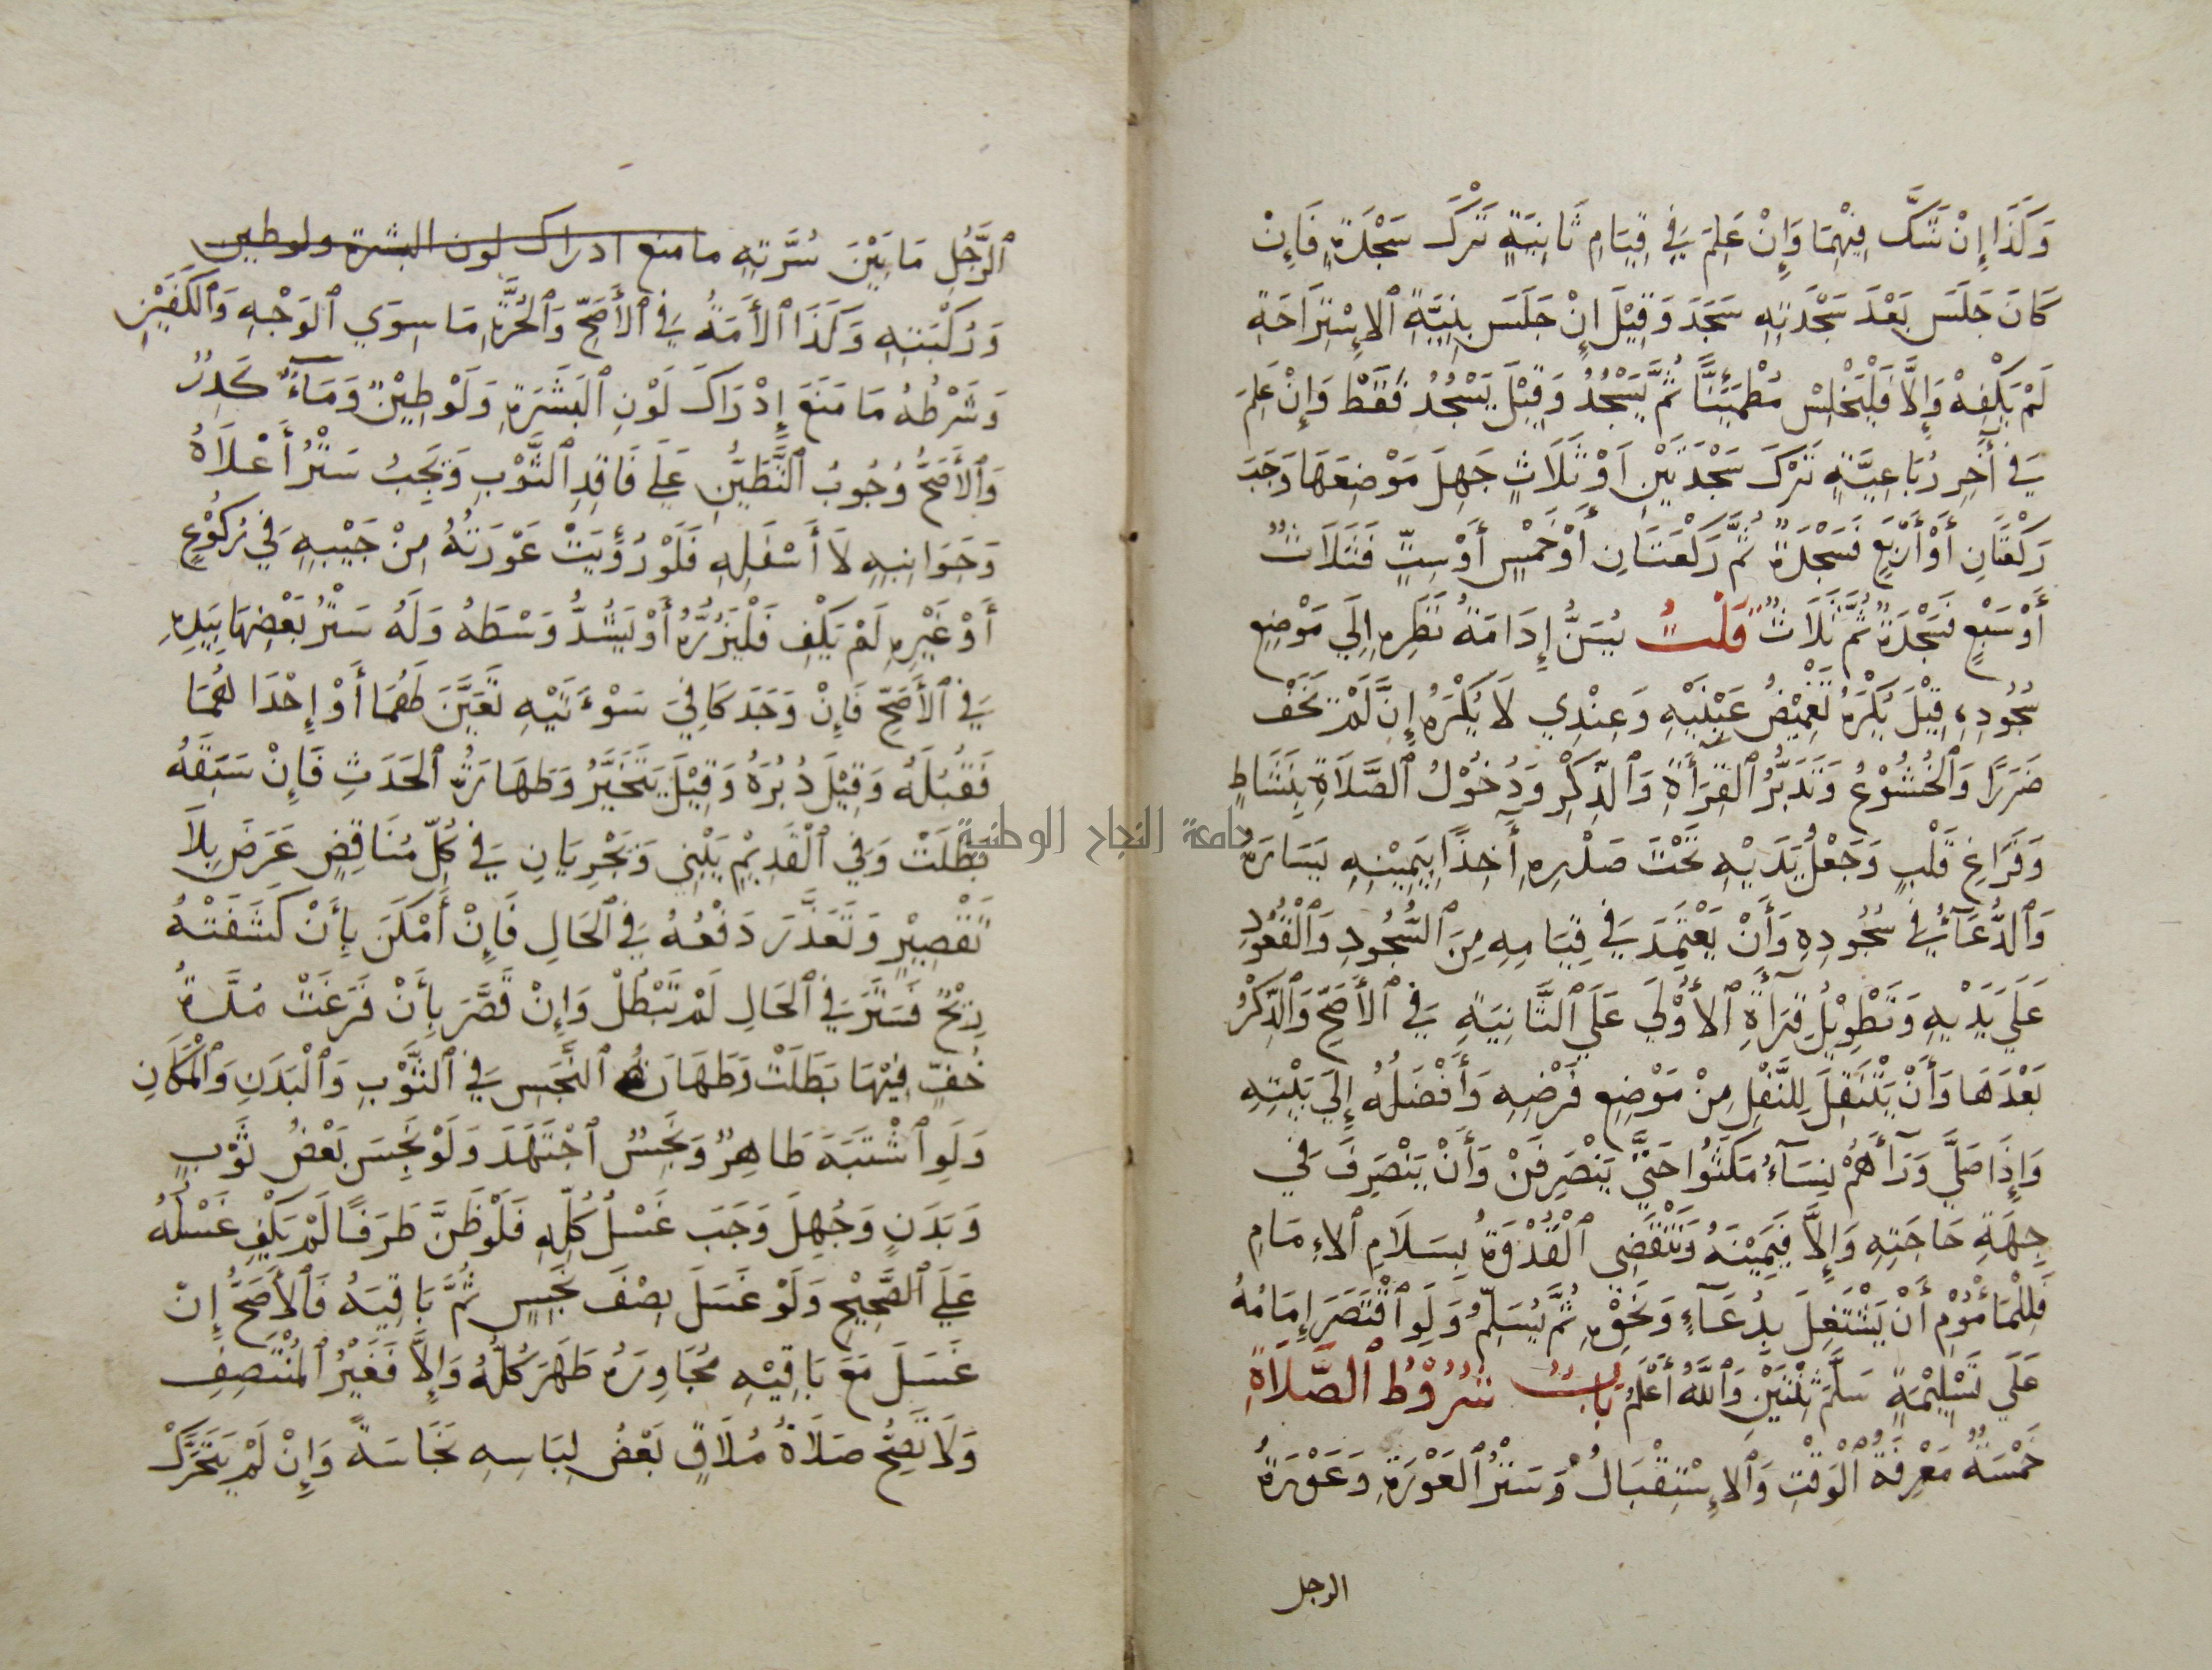 وَكَذَا إِنْ شَكَّ فِيْهِمَا وَإِنْ عَلِمَ فِي قِيَامِ ثَانِيَةٍ تَرْكَ سَجْدَةٍ فَإِنْ
كَانَ جَلَسَ بَعْدَ سَجْدَتِهِ سَجَدَ وَقِيْلَ إِنْ جَلَسَ بِنِيَّةِ الِإسْتِرَاحَةِ
لَمْ يَكْفِهْ وَإِلَّا فَلْيَجْلِسْ مُطْمَئِنًّا ثُمَّ يَسْجُدُ وَقِيْلَ يَسْجُدُ فَقَطْ وَإِنْ عَلِمَ
فِي أَخِرِ رُبَاعِيَّةٍ تَرْكَ سَجْدَتَيْنِ اَوْ ثَلَاثٍ جَهِلَ مَوْضِعَهَا وَجَبَ
رَكْعَتَانِ أَوْ أَرْبَعٍ فَسَجْدَةٌ ثُمَّ رَكْعَتَانِ أَوْ خَمْسٍ أَوْ سِتٍّ فَثَلَاثٌ
أَوْ سَبْعٍ فَسَجْدَةٌ ثُمَّ ثَلَاثٌ قُلْتُ يُسَنُّ إِدَامَةُ نَظَرِهِ إِلَي مَوْضِعِ
سُجُودِهِ، قِيْلَ يُكْرَهُ تَغْمِيْضُ عَيْنَيْهِ وَعِنْدِي لَا يُكْرَهُ إِنْ لَمْ يَخَفْ
ضَرَرًا وَالخُشُوْعُ وَتَدَبُّرُ القِرَأَةِ وَالذِّكْرِ وَدُخُوْلُ الصَّلَاةِ بِنَشَاطٍ
وَفَرَاغِ قَلْبٍ وَجَعْلُ يَدَيْهِ تَحْتَ صَدْرِهِ أَخِذًا بِيَمِيْنِهِ يَسَارَهُ
وَالدُّعَآءُ فِي سُجُودِهِ وَأَنْ يَعْتَمِدَ فِي قِيَامِهِ مِنَ السُّجُودِ وَالْقُعُودِ
عَلَي يَدَيْهِ وَتَطْوِيْلُ قِرَآأَةِ الأُوْلَي عَلَي الثَّانِيَةِ فِي الأَصَحِّ وَالذِّكْرُ
بَعْدَهَا وَأَنْ يَنْتَقِلَ لِلنَّفْلِ مِنْ مَوْضِعِ فَرْضِهِ وَأَفْضَلُهُ إِلَي بَيْتِهِ
وَإِذَا صَلَّي وَرَآأَهُمْ نِسَآءٌ مَكَثُوا حَتَّي يَنْصَرِفْنَ وَأَنْ يَنْصَرِفَ فِي
جِهَةِ حَاجَتِهِ وَإِلَّا فَيَمِيْنَهُ وَتَنْقَضِي الْقُدْوَةُ بِسَلَامِ الاِمَامِ
فَلِلْمَأْمُوْمِ أَنْ يَشْتَغِلَ بِدُعَآءٍ وَنَحْوِهِ ثُمَّ يُسَلِّمُ وَلَوِ اقْتَصَرَ إِمَامُهُ
عَلَي تَسْلِيْمَةٍ سَلَّمَ ثِنْتَيْنِ وَاللهُ أَعْلَمُ بَابٌ شُرُوْطُ الصَّلَاةِ
خَمْسَةٌ مَعْرِفَةُ الْوَقْتِ وَالِإسْتِقْبَالُ وَسَتْرُ العَوْرَةِ وَعَوْرَةُ
الرجل
الرَّجُلِ مَا بَيْنَ سُرَّتِهِ ما منع ادراك لون البشرة ولو طين
وَرُكْبَتِهِ وَكَذَا الأَمَةُ فِي الأَصَحِّ وَالحُرَّةِ مَا سِوَي الوَجْهِ وَالكَفَّيْنِ
وَشَرْطُهُ مَا مَنَعَ إِدْرَاكَ لَوْنِ البَشَرَةِ وَلَوْ طِيْنٌ وَمَآءٌ كَدِرٌ
وَالأَصَحُّ وُجُوبُ التَّطَيُّنِ عَلَي فَاقِدِ الثَّوْبِ وَيَجِبُ سَتْرُ أَعْلَاهُ
وَجَوَانِبِهِ لَا أَسْفَلِهِ فَلَوْ رُؤِيَتْ عَوْرَتُهُ مِنْ جَيْبِهِ فِي رُكُوْعٍ
أَوْ غَيْرِهِ لَمْ يَكْفِ فَلْيَزُرَّهُ أَوْ يَشُدُّ وَسْطَهُ وَلَهُ سَتْرُ بَعْضِهَا بِيَدِهِ
فِي الأَصَحِّ فَإِنْ وَجَدَ كَافِيَ سَوْءَتَيْهِ تَعَيَّنَ لَهُمَا أَوْ إِحْدَاهُمَا
فَقُبُلَهُ وَقِيْلَ دُبُرَهُ وَقِيْلَ يَتَخَيَّرُ وَطَهَارَةُ الحَدَثِ فَإِنْ سَبَقَهُ
بَطَلَتْ وَفِي الْقَدِيْمِ يَبْنِي وَيَجْرِيَانِ فِي كُلِّ مُنَاقِضٍ عَرَضَ بِلَا
تَقْصِيْرٍ وَتَعَذَّرَ دَفْعُهُ فِي الحَالِ فَإِنْ أَمْكَنَ بِأَنْ كَشَفَتْهُ
رِيْحٌ فَسَتَرَ فِي الحَالِ لَمْ تَبْطُلْ وَإِنْ قَصَّرَ بِأَنْ فَرَغَتْ مُدَّةُ
خُفٍّ فِيْهَا بَطَلَتْ وَطَهَارَةُ النَّجَسِ فِي الثَّوْبِ وَالْبَدَنِ وَالْمَكَانِ
وَلَوِ اشْتَبَهَ طَاهِرٌ وَنَجِسٌ اجْتَهَدَ وَلَوْ نَجِسَ بَعْضُ ثَوْبٍ
وَبَدَنٍ وَجُهِلَ وَجَبَ غَسْلُ كُلِّهِ فَلَوْ ظَنَّ طَرَفًا لَمْ يَكْفِ غَسْلُهُ
عَلَي الصَّحِيْحِ وَلَوْ غَسَلَ نِصْفَ نَجِسٍ ثُمَّ بَاقِيَهُ فَالأَصَحُّ إِنْ
غَسَلَ مَعَ بَاقِيْهِ مُجَاوِرَهُ طَهَرَ كُلُّهُ وَإِلَّا فَغَيْرُ المُنْتَصِفِ
وَلَا تَصِحُّ صَلَاةُ مُلَاقٍ بَعْضُ لِبَاسِهِ نَجَاسَةً وَإِنْ لَمْ يَتَحَرَّكْ
جامعة النجاح الوطنية